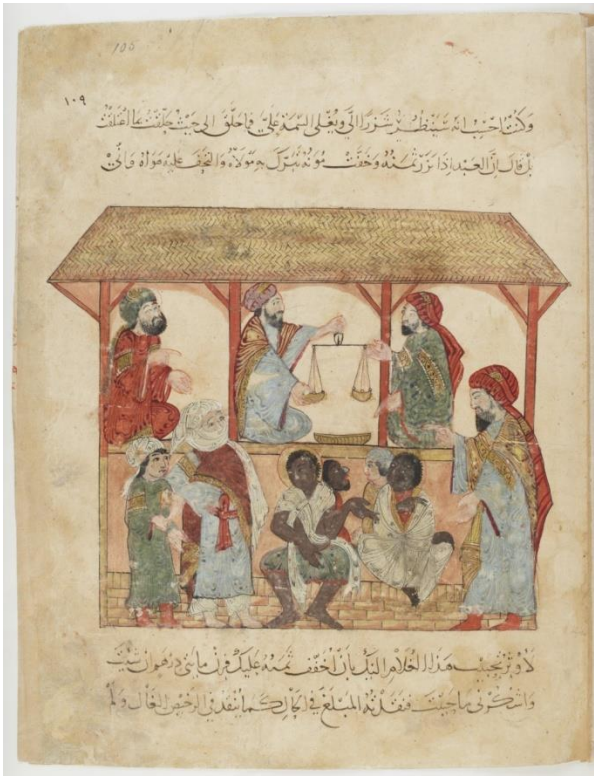 105
١٠٩
وكنت احسب انه سينظر شزرا الي ويغلي السمة علي فما حلق الى حيث حلقت اعتلقت
بل قال ان العبد اذا نزر ثمنه وخفت مؤنه تبرك به مولاه والتحف عليه هواه واني
لاوثر تحبيب هذا الغلام اليك بان اخفف ثمنه عليك فزن مائتي درهم ان شئت
واشكر لي ما حييت فنقدته المبلغ في الحال كما ينقد في الرخيص الغال ولم